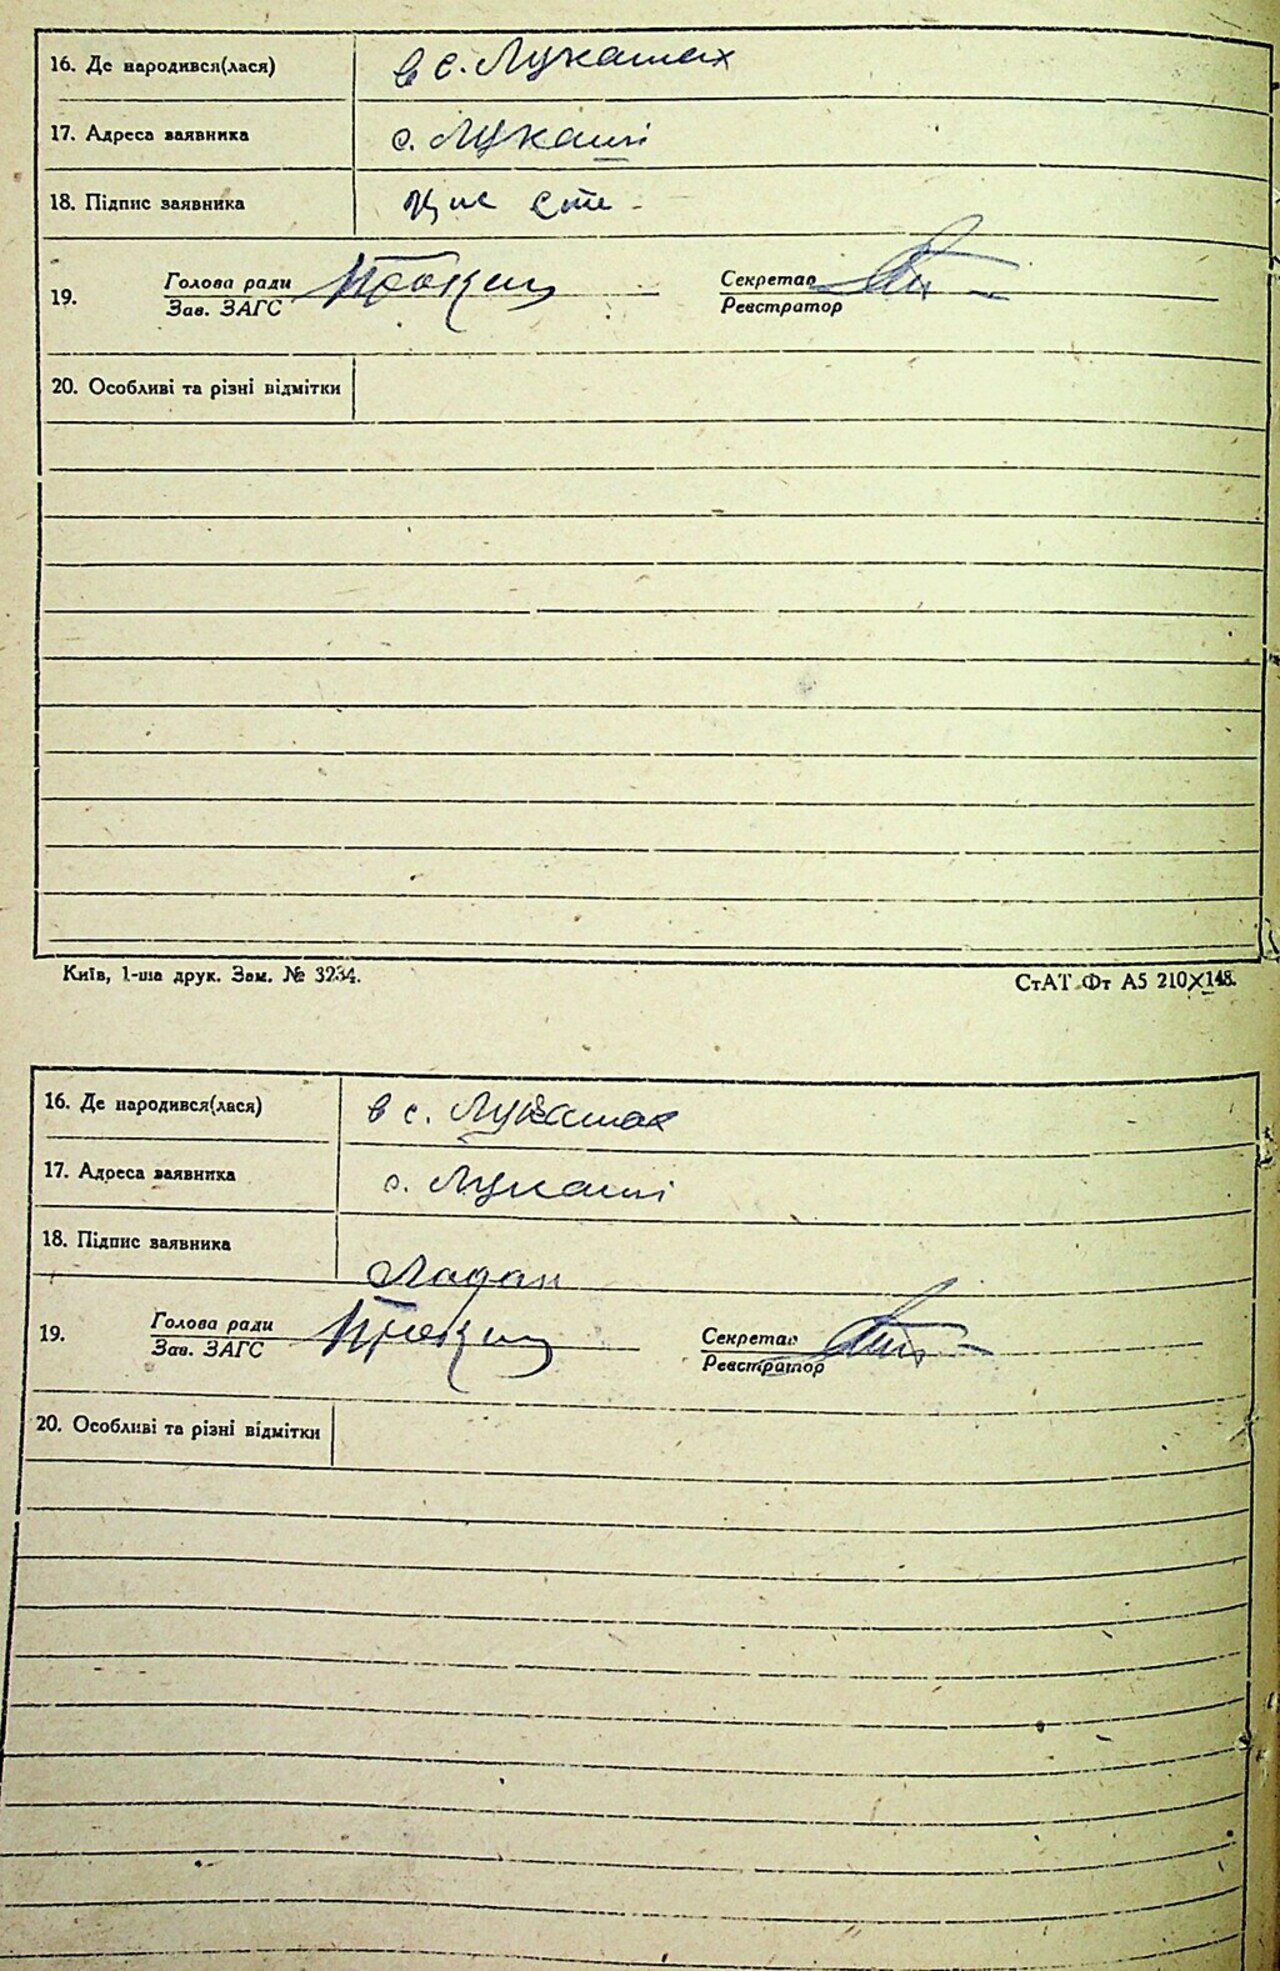 16. Де народився(лася) в с. Лукашах
17. Адреса заявника с. Лукаші
18. Підпис заявника
19. Голова ради Секретар
Зав. ЗАГС Реєстратор
20. Особливі та різні відмітки
Київ, 1-ша друк. Зам. № 3234. СтАТ Фт А5 210×148.
16. Де народився(лася) в с. Лукашах
17. Адреса заявника с. Лукаші
18. Підпис заявника Ладан
19. Голова ради Секретар
Зав. ЗАГС Реєстратор
20. Особливі та різні відмітки